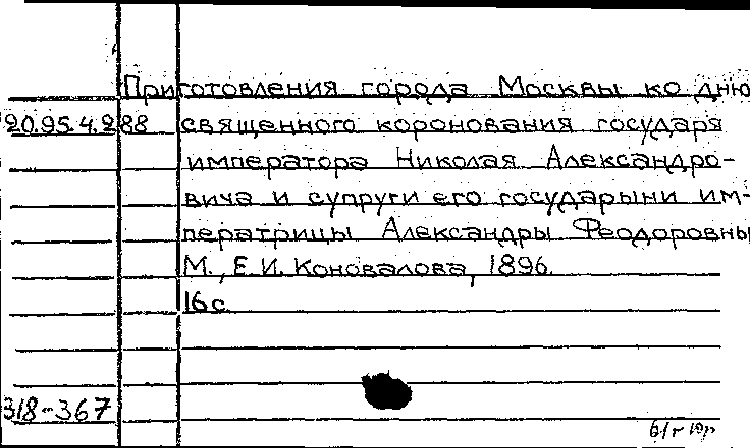 Приготовления города Москвы ко дню
20.95.4.288 священного коронования государя
императора Николая Александро-
вича и супруги его государыни им-
ператрицы Александры Феодоровны
М., Е.И. Коновалова, 1896.
16с
318-367